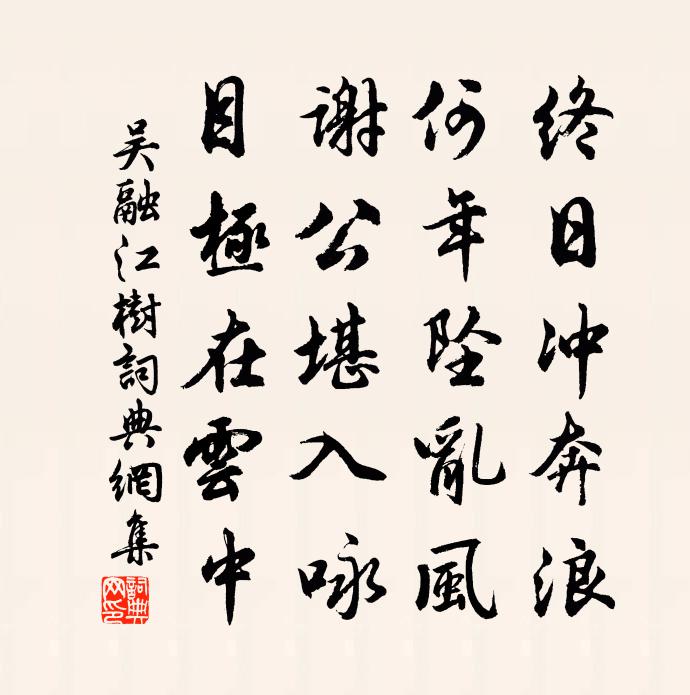 终日冲奔浪
何年坠亂風
謝公堪入咏
目極在雲中
吴融江樹詞典網集
詞典网印